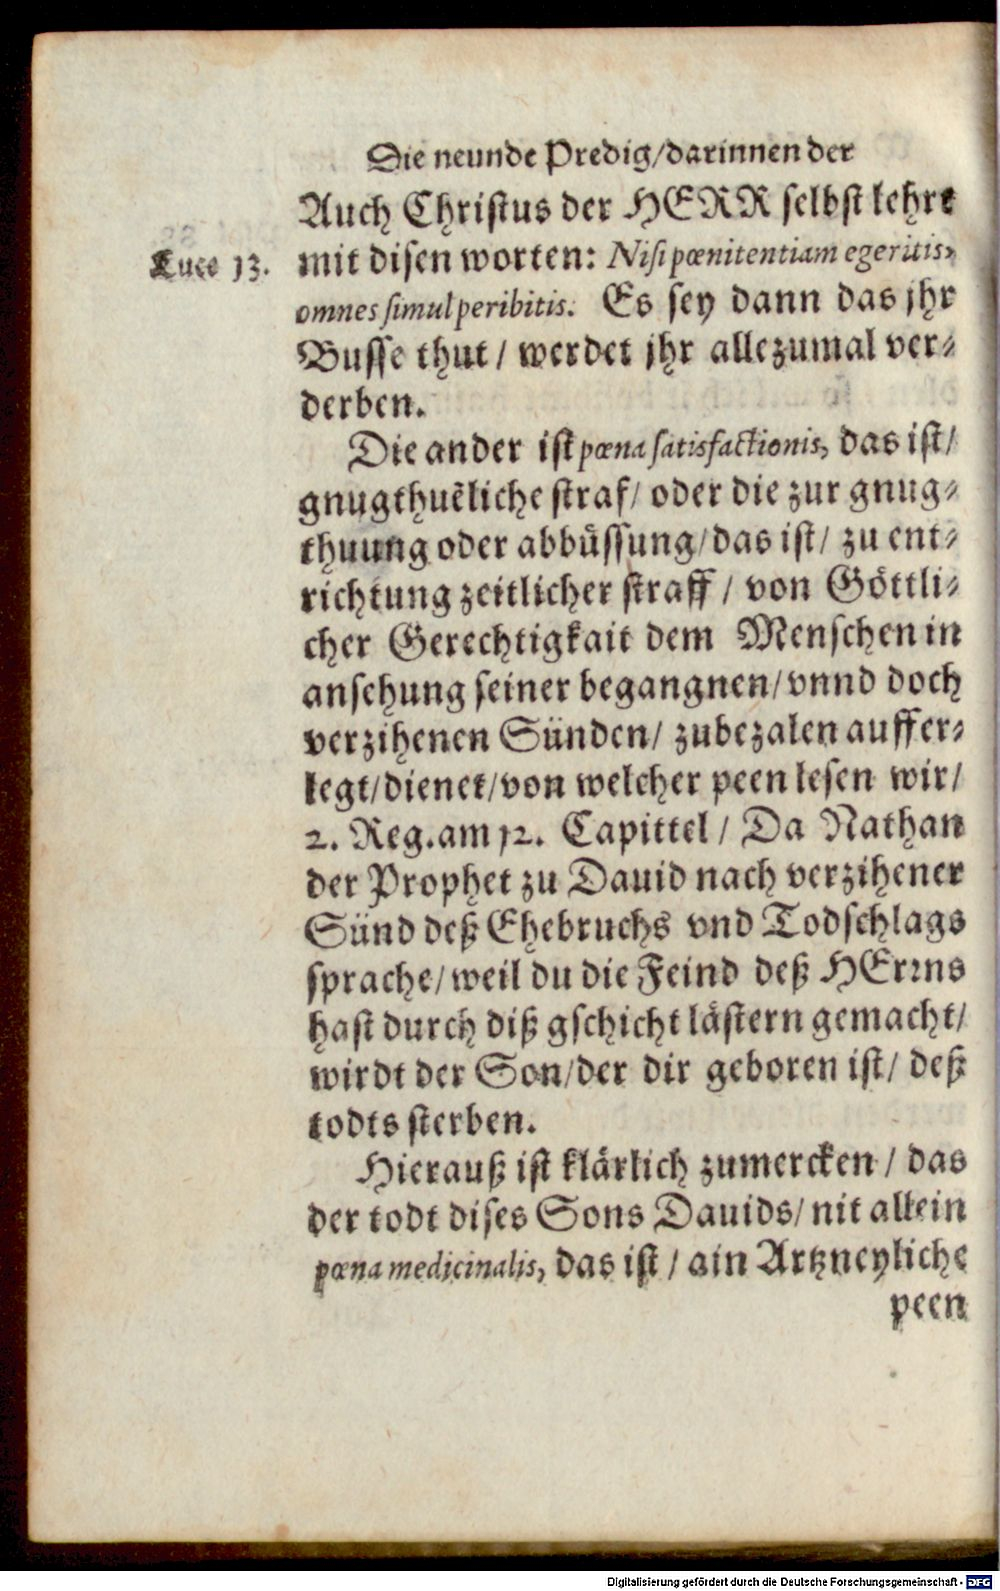 Die neunde Predig/darinnen der
Auch Christus der HERR selbst lehrt
Luce 13.
mit disen worten: Nisi pœnitentiam egeritis,
omnes simul peribitis. Es sey dann das jhr
Busse thut / werdet jhr allezumal ver-
derben.
Die ander ist pœna satisfactionis, das ist/
gnugthuẽliche straf/ oder die zur gnug-
thuung oder abbüssung/das ist/ zu ent-
richtung zeitlicher straff / von Göttli-
cher Gerechtigkait dem Menschen in
ansehung seiner begangnen/vnnd doch
verzihenen Sünden/ zubezalen auffer-
legt/dienet/von welcher peen lesen wir/
2. Reg.am 12. Capittel / Da Nathan
der Prophet zu Dauid nach verzihener
Sünd deß Ehebruchs vnd Todschlags
sprache/weil du die Feind deß HErrns
hast durch diß gschicht lästern gemacht/
wirdt der Son/der dir geboren ist/ deß
todts sterben.
Hierauß ist klärlich zumercken / das
der todt dises Sons Dauids/ nit allein
pœna medicinalis, das ist / ain Artzneyliche
peen
Digitalisierung gefördert durch die Deutsche Forschungsgemeinschaft - DFG